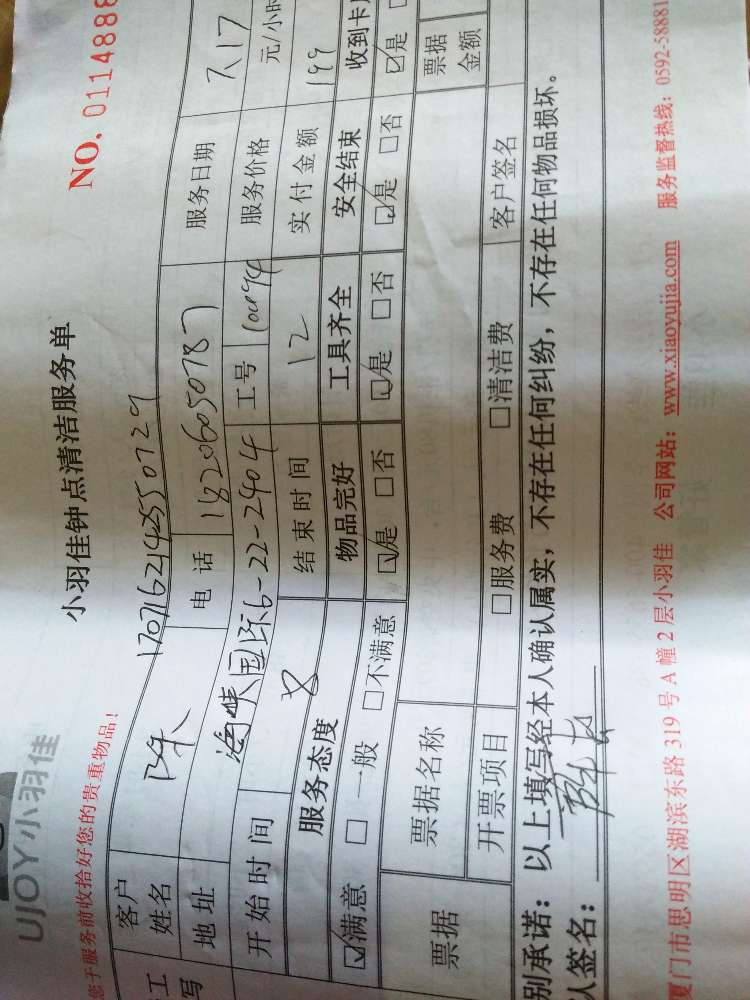 UJOY小羽佳
NO. 0114888
小羽佳钟点清洁服务单
您于服务前收拾好您的贵重物品！
17071621425550729
客户姓名 陈 电话 18206050787 服务日期 7.17
地址 海峡国际6-22-2404 工号 服务价格 元/小时
开始时间 8 结束时间 12 实付金额 199
服务态度 物品完好 工具齐全 安全结束 收到卡
☑满意 □一般 □不满意 ☑是 □否 ☑是 □否 ☑是 □否 ☑是
票据 票据名称 票据金额
开票项目 □服务费 □清洁费 客户签名
别承诺：以上填写经本人确认属实，不存在任何纠纷，不存在任何物品损坏。
人签名：
厦门市思明区湖滨东路 319 号 A 幢 2 层小羽佳 公司网站：www.xiaoyujia.com 服务监督热线：0592-58881